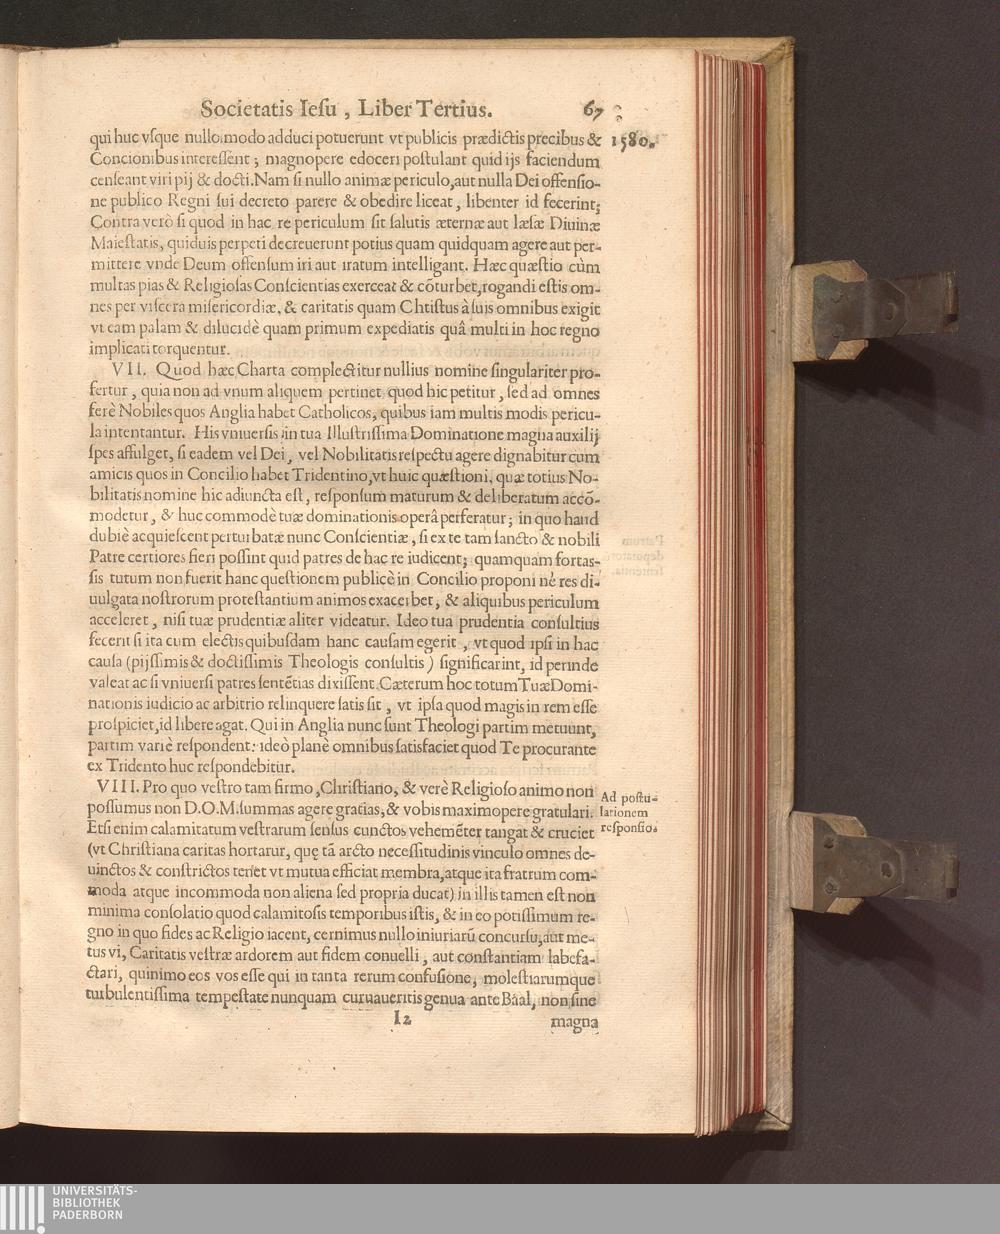 Societatis Iesu, Liber Tertius. 67
1580.
qui huc vsque nullo modo adduci potuerunt vt publicis prædictis precibus &
Concionibus interessent; magnopere edoceri postulant quid ijs faciendum
censeant viri pij & docti. Nam si nullo animæ periculo, aut nulla Dei offensio-
ne publico Regni sui decreto parere & obedire liceat, libenter id fecerint;
Contra verò si quod in hac re periculum sit salutis æternæ aut læsæ Diuinæ
Maiestatis, quiduis perpeti decreuerunt potius quam quidquam agere aut per-
mittere vnde Deum offensum iri aut iratum intelligant. Hæc quæstio cùm
multas pias & Religiosas Conscientias exerceat & cõturbet, rogandi estis om-
nes per viscera misericordiæ, & caritatis quam Chtistus à suis omnibus exigit
vt eam palam & dilucidè quam primum expediatis quâ multi in hoc regno
implicati torquentur.
VII. Quod hæc Charta complectitur nullius nomine singulariter pro-
fertur, quia non ad vnum aliquem pertinet quod hic petitur, sed ad omnes
ferè Nobiles quos Anglia habet Catholicos, quibus iam multis modis pericu-
la intentantur. His vniuersis in tua Illustrissima Dominatione magna auxilij
spes affulget, si eadem vel Dei, vel Nobilitatis respectu agere dignabitur cum
amicis quos in Concilio habet Tridentino, vt huic quæstioni, quæ totius No-
bilitatis nomine hic adiuncta est, responsum maturum & deliberatum accõ-
modetur, & huc commodè tuæ dominationis operâ perferatur; in quo haud
dubiè acquiescent perturbatæ nunc Conscientiæ, si ex te tam sancto & nobili
Patre certiores fieri possint quid patres de hac re iudicent; quamquam fortas-
sis tutum non fuerit hanc questionem publicè in Concilio proponi nè res di-
uulgata nostrorum protestantium animos exacerbet, & aliquibus periculum
acceleret, nisi tuæ prudentiæ aliter videatur. Ideo tua prudentia consultius
fecerit si ita cum electis quibusdam hanc causam egerit, vt quod ipsi in hac
causa (pijssimis & doctissimis Theologis consultis) significarint, id perinde
valeat ac si vniuersi patres sentẽtias dixissent. Cæterum hoc totum Tuæ Domi-
nationis iudicio ac arbitrio relinquere satis sit, vt ipsa quod magis in rem esse
prospiciet, id libere agat. Qui in Anglia nunc sunt Theologi partim metuunt,
partim variè respondent: ideò planè omnibus satisfaciet quod Te procurante
ex Tridento huc respondebitur.
VIII. Pro quo vestro tam firmo, Christiano, & verè Religioso animo non
possumus non D.O.M. summas agere gratias, & vobis maximopere gratulari.
Ad postu-
lationem
responsio.
Etsi enim calamitatum vestrarum sensus cunctos vehemẽter tangat & cruciet
(vt Christiana caritas hortarur, quę tã arcto necessitudinis vinculo omnes de-
uinctos & constrictos tenet vt mutua efficiat membra, atque ita fratrum com-
moda atque incommoda non aliena sed propria ducat) in illis tamen est non
minima consolatio quod calamitosis temporibus istis, & in eo potissimum re-
gno in quo fides ac Religio iacent, cernimus nullo iniuriarũ concursu, aut me-
tus vi, Caritatis vestræ ardorem aut fidem conuelli, aut constantiam labefa-
ctari, quinimo eos vos esse qui in tanta rerum confusione, molestiarumque
turbulentissima tempestate nunquam curuaueritis genua ante Baal, non sine
I 2 magna
UNIVERSITÄTS-
BIBLIOTHEK
PADERBORN